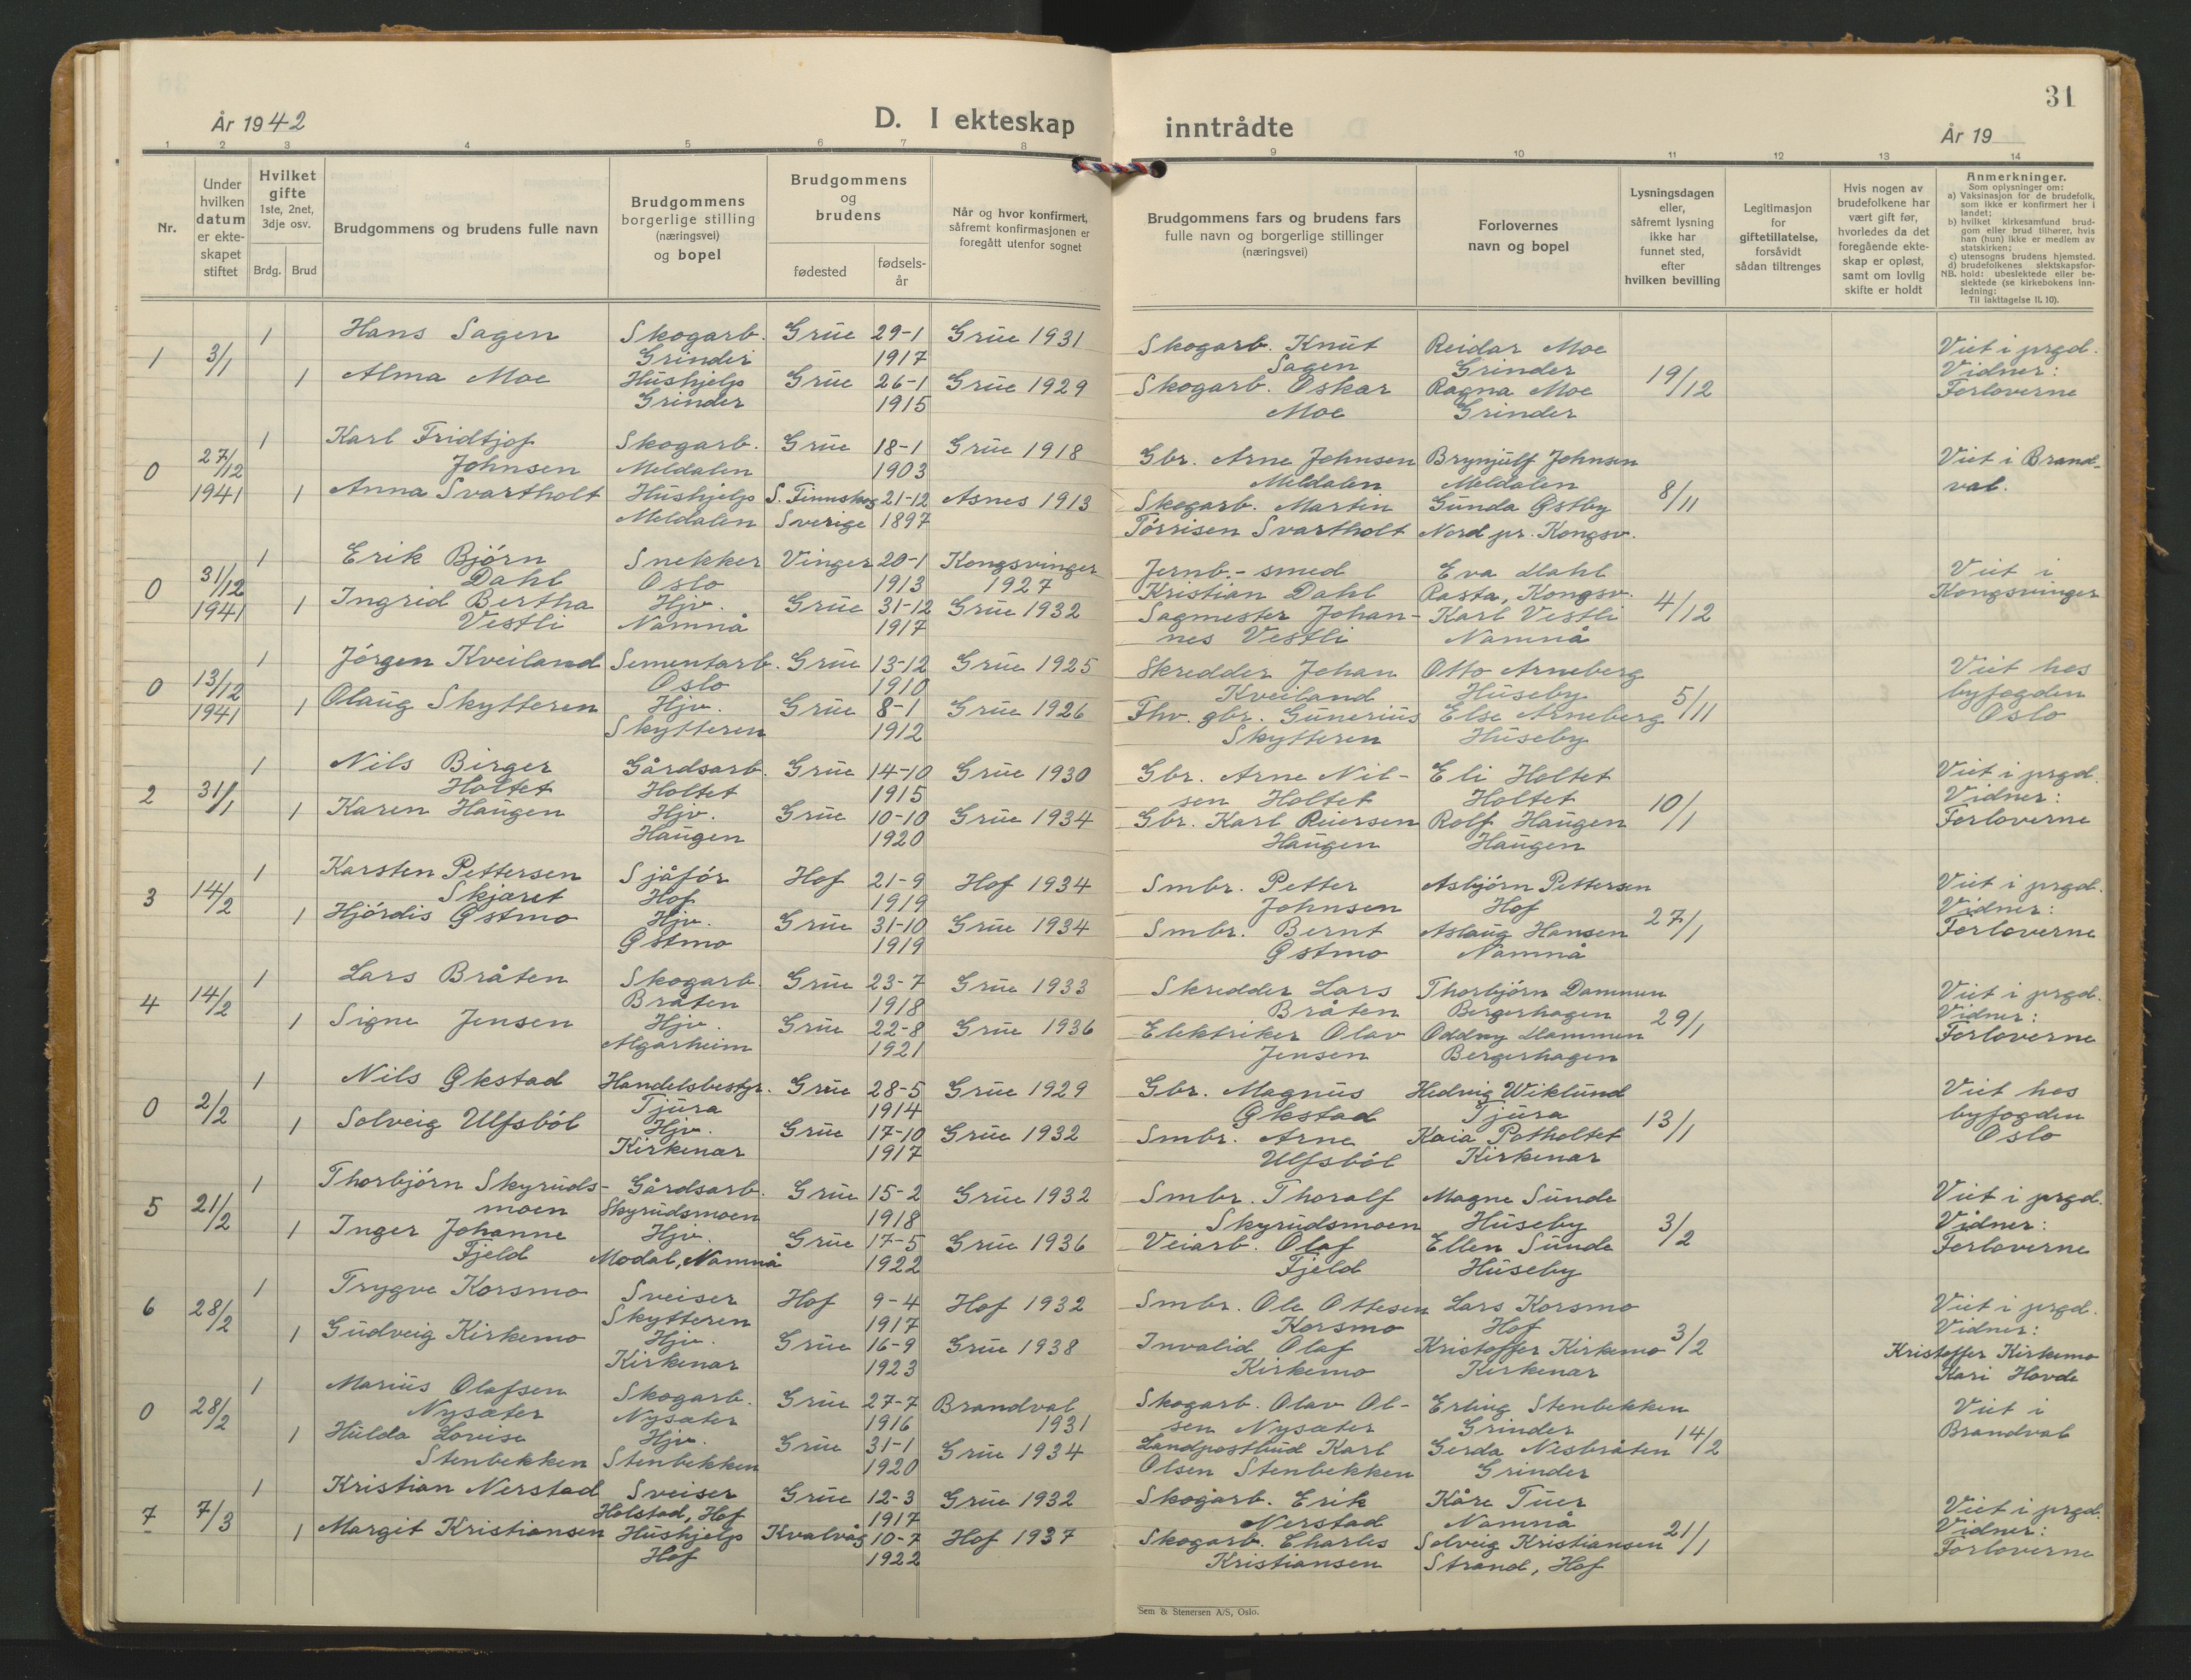 31
År 1942
D. I ekteskap inntrådte
År 19
1 2 3 4 5 6 7 8 9 10 11 12 13 14
Nr.
Under hvilken datum er ekteskapet stiftet
Hvilket gifte 1ste, 2net, 3dje osv.
Brdg. Brud
Brudgommens og brudens fulle navn
Brudgommens borgerlige stilling (næringsvei) og bopel
Brudgommens og brudens
fødested
fødselsår
Når og hvor konfirmert, såfremt konfirmasjonen er foregått utenfor sognet
Brudgommens fars og brudens fars fulle navn og borgerlige stillinger (næringsvei)
Forlovernes navn og bopel
Lysningsdagen eller, såfremt lysning ikke har funnet sted, efter hvilken bevilling
Legitimasjon for giftetillatelse, forsåvidt sådan tiltrenges
Hvis nogen av brudefolkene har vært gift før, hvorledes da det foregående ekteskap er opløst, samt om lovlig skifte er holdt
Anmerkninger.
Som oplysninger om:
a) Vaksinasjon for de brudefolk, som ikke er konfirmert her i landet;
b) hvilket kirkesamfund brudgom eller brud tilhører, hvis han (hun) ikke er medlem av statskirken;
c) utensogns brudens hjemsted.
d) brudefolkenes slektskapsforhold: ubeslektede eller beslektede (se kirkebokens innledning:
NB.
Til iakttagelse II. 10).
1 3/1 1 Hans Sagen Skogarb. Grue 29-1 Grue 1931 Skogarb. Knut Reidar Moe Viet i prgd.
Grinder 1917 Sagen Grinder 19/12 Vidner:
1 Alma Moe Hushjelp Grue 26-1 Grue 1929 Skogarb. Oskar Ragna Moe Forloverne
Grinder 1915 Moe Grinder
0 27/12 1941 1 Karl Fridtjof Skogarb. Grue 18-1 Grue 1918 Gbr. Arne Johnsen Brynjulf Johnsen Viet i Brand-
Johnsen Meldalen 1903 Meldalen Meldalen 8/11 val.
1 Anna Svartholt Hushjelp S. Finnskog 21-12 Åsnes 1913 Skogarb. Martin Gunda Østby
Meldalen Sverige 1897 Torrisen Svartholt Nord pr. Kongsv.
0 31/12 1941 1 Erik Bjørn Snekker Vinger 20-1 Kongsvinger Jernb.-smed Eva Dahl Viet i
Dahl Oslo 1913 1927 Kristian Dahl Rasta, Kongsv. 4/12 Kongsvinger
1 Ingrid Bertha Hjv. Grue 31-12 Grue 1932 Sagmester Johan- Karl Vestli
Vestli Namnå 1917 nes Vestli Namnå
0 13/12 1941 1 Jørgen Kveiland Sementarb. Grue 13-12 Grue 1925 Skredder Johan Otto Arneberg Viet hos
Oslo 1910 Kveiland Huseby 5/11 byfogden
1 Olaug Skytteren Hjv. Grue 8-1 Grue 1926 Fhv. gbr. Gunerius Else Arneberg Oslo
Skytteren 1912 Skytteren Huseby
2 31/1 1 Nils Birger Gårdsarb. Grue 14-10 Grue 1930 Gbr. Arne Nil- Eli Holtet Viet i prgd.
Holtet Holtet 1915 sen Holtet Holtet 10/1 Vidner:
1 Karen Haugen Hjv. Grue 10-10 Grue 1934 Gbr. Karl Reiersen Rolf Haugen Forloverne
Haugen 1920 Haugen Haugen
3 14/2 1 Karsten Pettersen Sjåfør Hof 21-9 Hof 1934 Smbr. Petter Asbjørn Pettersen Viet i prgd.
Skjæret Hof 1919 Johnsen Hof 27/1 Vidner:
1 Hjørdis Østmo Hjv. Grue 31-10 Grue 1934 Smbr. Bernt Aslaug Hansen Forloverne
Østmo 1919 Østmo Namnå
4 14/2 1 Lars Bråten Skogarb. Grue 23-7 Grue 1933 Skredder Lars Thorbjørn Dammen Viet i prgd.
Bråten 1918 Bråten Bergerhagen 29/1 Vidner:
1 Signe Jensen Hjv. Grue 22-8 Grue 1936 Elektriker Olav Oddny Dammen Forloverne
Algarheim 1921 Jensen Bergerhagen
0 2/2 1 Nils Økstad Handelsbestyr. Grue 28-5 Grue 1929 Gbr. Magnus Hedvig Wiklund Viet hos
Tjura 1914 Økstad Tjura 13/1 byfogden
1 Solveig Ulfsbøl Hjv. Grue 17-10 Grue 1932 Smbr. Arne Kaia Potholtet Oslo
Kirkenær 1917 Ulfsbøl Kirkenær
5 21/2 1 Thorbjørn Skyruds- Gårdsarb. Grue 15-2 Grue 1932 Smbr. Thoralf Magne Sunde Viet i prgd.
moen Skyrudsmoen 1918 Skyrudsmoen Huseby 3/2 Vidner:
1 Inger Johanne Hjv. Grue 17-5 Grue 1936 Veiarb. Olaf Ellen Sunde Forloverne
Fjeld Modal, Namnå 1922 Fjeld Huseby
6 28/2 1 Trygve Korsmo Sveiser Hof 9-4 Hof 1932 Smbr. Ole Ottesen Lars Korsmo Viet i prgd.
Skytteren 1917 Korsmo Hof 3/2 Vidner:
1 Gudveig Kirkemo Hjv. Grue 16-9 Grue 1938 Invalid Olaf Kristoffer Kirkemo Kristoffer Kirkemo
Kirkenær 1923 Kirkemo Kirkenær Kari Hovde
0 28/2 1 Marius Olafsen Skogarb. Grue 27-7 Brandval Skogarb. Olav Ol- Erling Stenbekken Viet i
Nysæter Nysæter 1916 1931 sen Nysæter Grinder 14/2 Brandval
1 Hulda Lovise Hjv. Grue 31-1 Grue 1934 Landpostbud Karl Gerda Nesbråten
Stenbekken Stenbekken 1920 Olsen Stenbekken Grinder
7 7/3 1 Kristian Nerstad Sveiser Grue 12-3 Grue 1932 Skogarb. Erik Kåre Tuer Viet i prgd.
Holstad, Hof 1917 Nerstad Namnå 21/1 Vidner:
1 Margit Kristiansen Hushjelp Kvalvåg 10-7 Hof 1937 Skogarb. Charles Solveig Kristiansen Forloverne
Hof 1922 Kristiansen Strand, Hof
Sem & Stenersen A/S, Oslo.